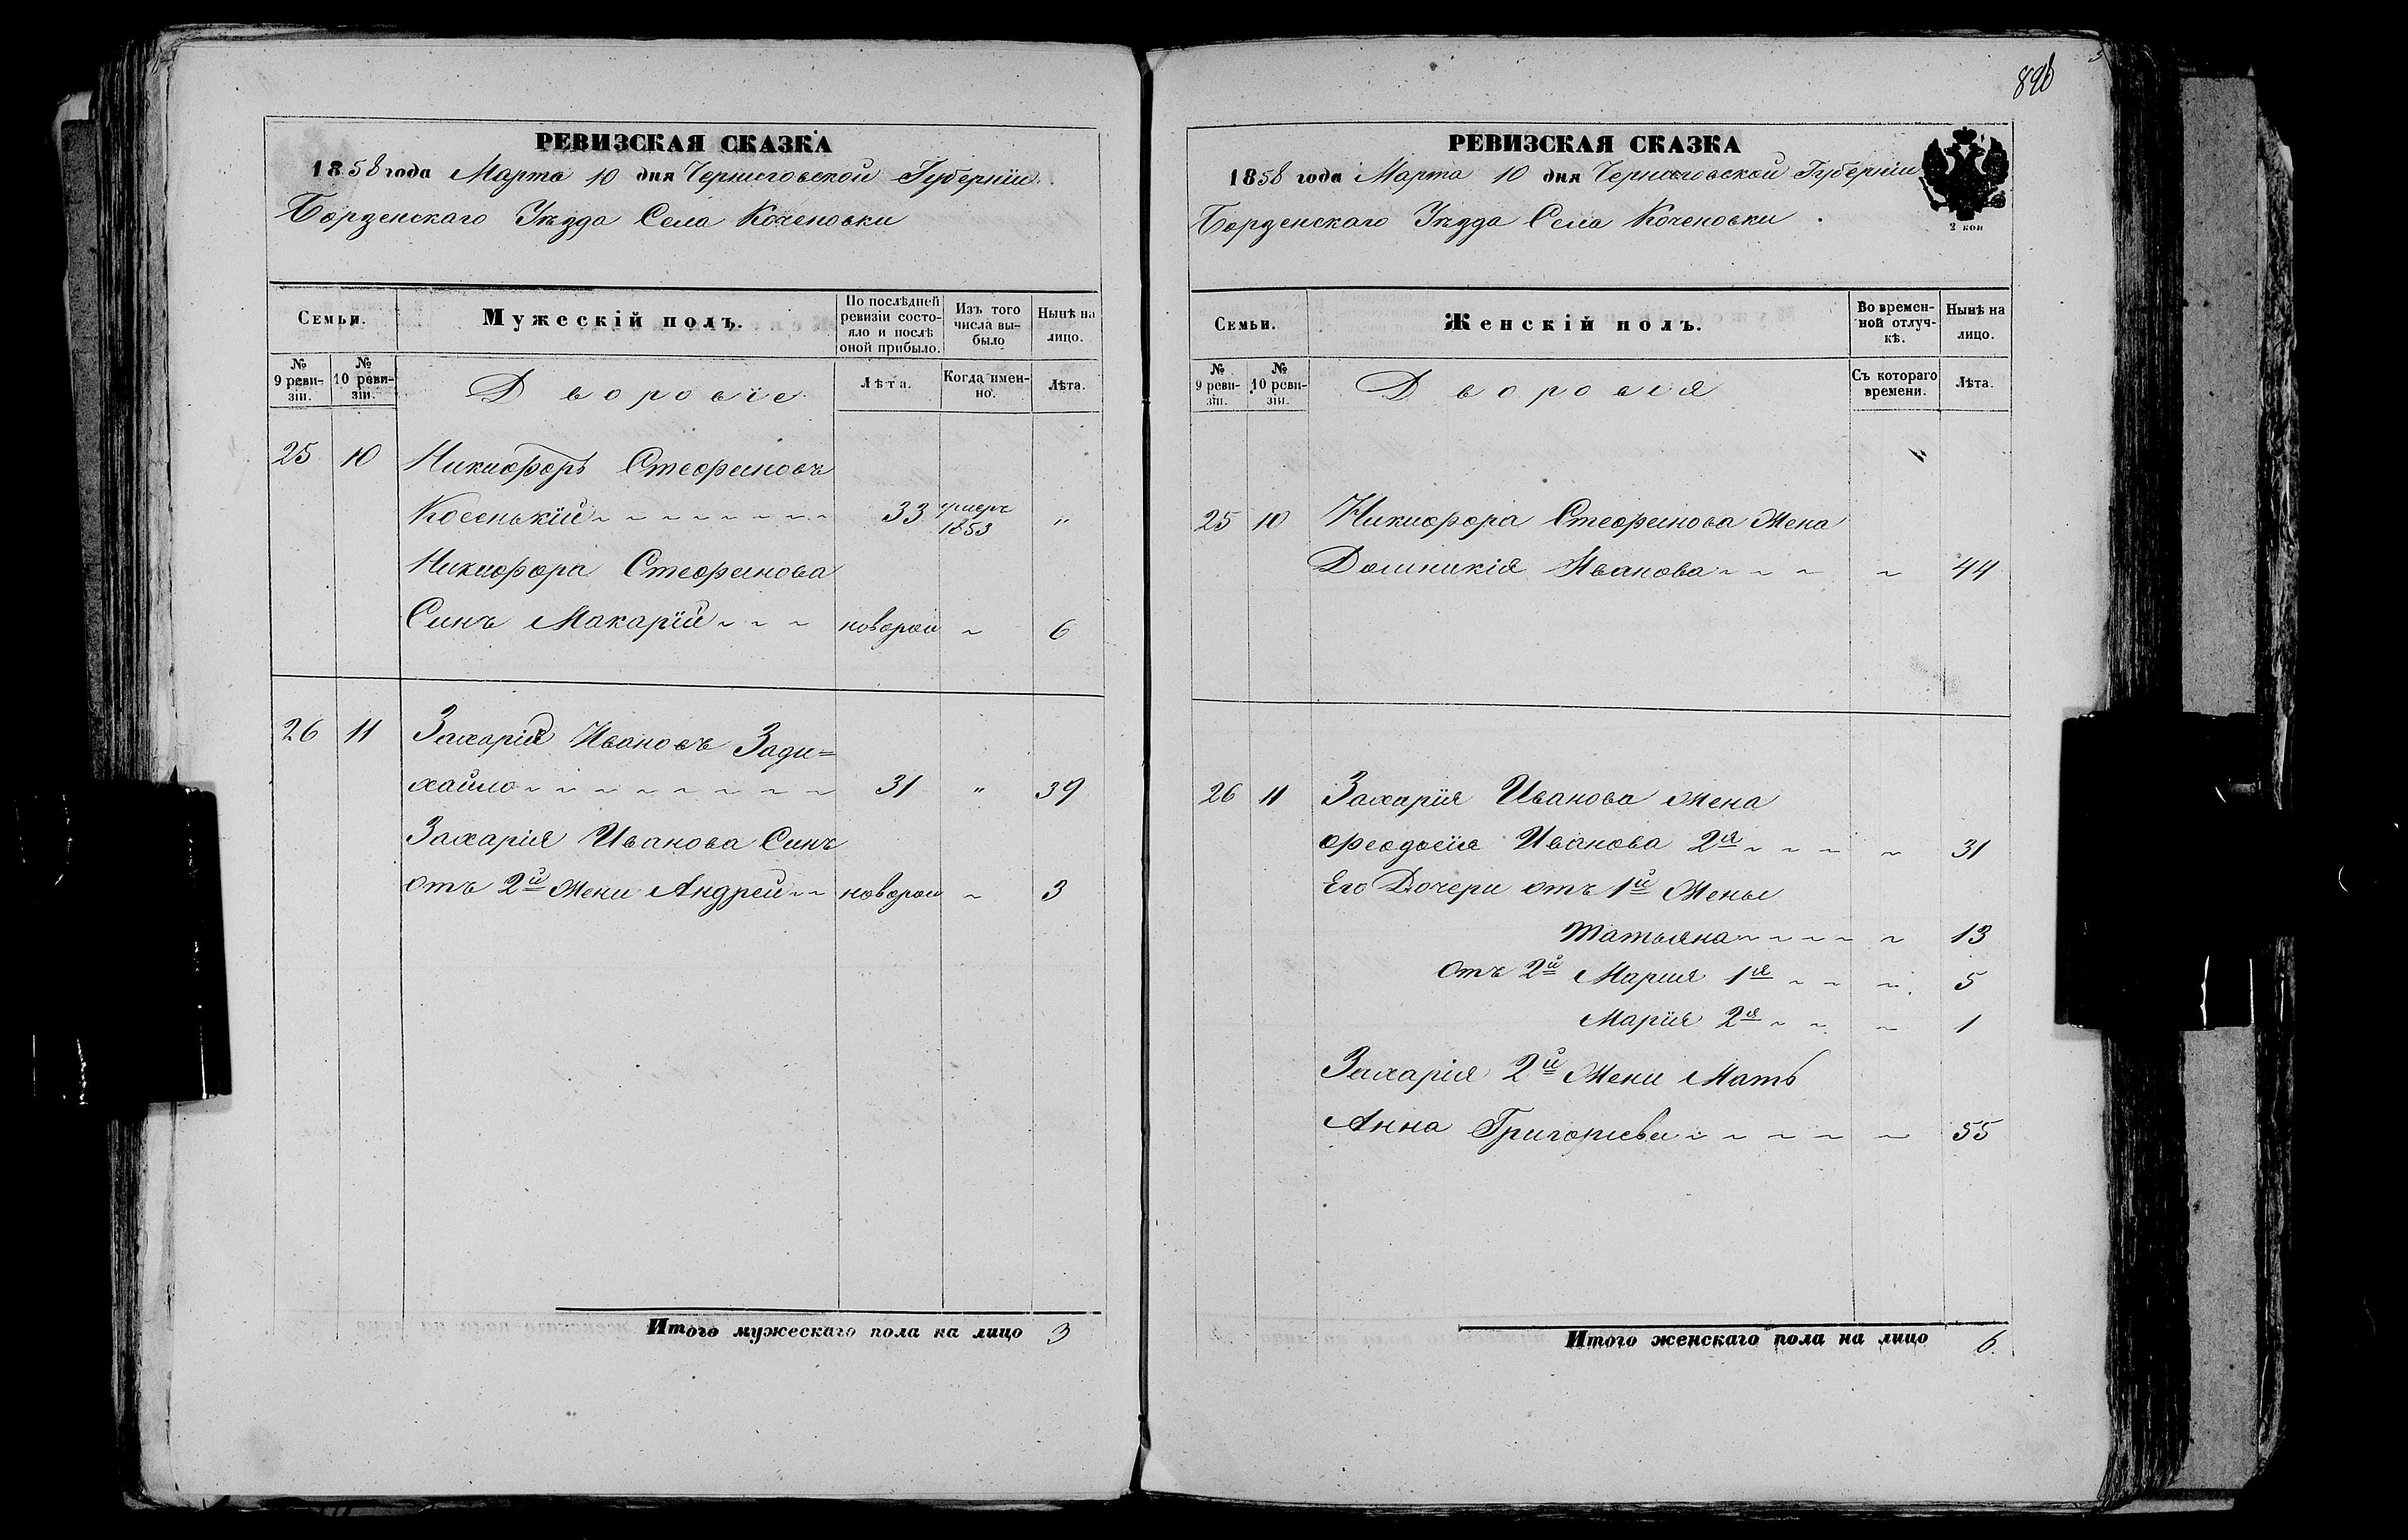 РЕВИЗСКАЯ СКАЗКА
1858 года Марта 10 дня Черниговской Губерніи
Борзенскаго Уѣзда Села Коченовки
Семьи.
Мужескій полъ.
По послѣдней ревизіи состояло и послѣ оной прибыло.
Изъ того числа выбыло
Нынѣ на лицо.
№ 9 ревизіи.
№ 10 ревизіи.
Дворовіе
Лѣта.
Когда именно.
Лѣта.
25 10 Никифоръ Стефановъ
Косенькій 33 умеръ 1853 "
Никифора Стефанова
Синъ Макарій новорож 6
26 11 Захарія Ивановъ Зади=
хайло 31 " 39
Захарія Иванова Синъ
отъ 2й Жени Андрей новорож 3
Итого мужескаго пола на лицо 3
РЕВИЗСКАЯ СКАЗКА
1858 года Марта 10 дня Черниговской Губерніи
Борзенскаго Уѣзда Села Коченовки
2 коп
Семьи.
Женскій полъ.
Во временной отлучкѣ.
Нынѣ на лицо.
№ 9 ревизіи.
№ 10 ревизіи.
Дворовія
Съ котораго времени.
Лѣта.
25 10 Никифора Стефанова Жена
Домникія Иванова 44
26 11 Захарія Иванова Жена
Феодосія Иванова 2я 31
Его Дочери отъ 1й Жены
Татьяна 13
отъ 2й Марія 1я 5
Марія 2я 1
Захарія 2й Жени Мать
Анна Григорьева 55
Итого женскаго пола на лицо 6